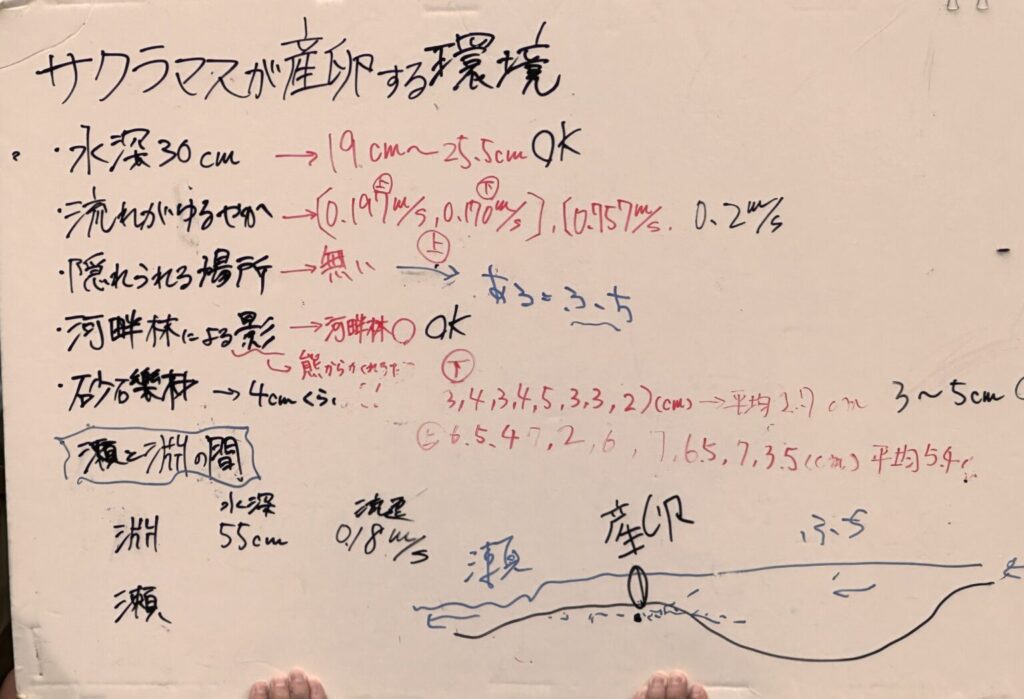 サクラマスが産卵する環境
・水深30cm →19cm〜25.5cm OK
・流れがゆるやか→[0.197m/s, 0.170m/s], [0.757m/s. 0.2m/s
上 下
・隠れられる場所→無い → ある=ふち
上
・河畔林による影→河畔林○ OK
熊からかくれる
下
・砂石礫材→4cmくらい 3,4,3,4,5,3,3,2)(cm)→平均 cm 3〜5cm
上 6.5.4 7,2,6, 7,6.5,7,3.5(cm) 平均5.4
瀬と淵の間
水深 流速
淵 55cm 0.18m/s
瀬
瀬 産卵 ふち